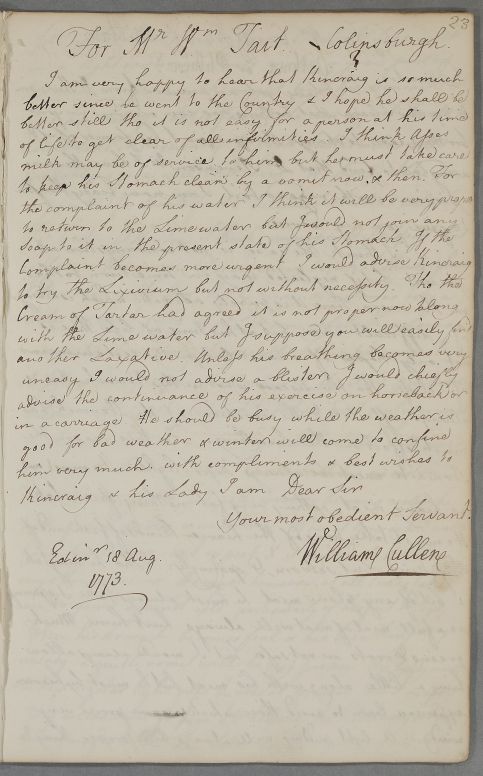 23
For Mr Wm Tait. Colinsburgh.
I am very happy to hear that Kincraig is so much
better since he went to the Country & I hope he shall be
better still tho it is not easy for a person at his time
of life to get clear of all infirmities. I think Asses
milk may be of service to him but he must take care
to keep his Stomach clean by a vomit now & then. For
the complaint of his water I think it will be very proper
to return to the Limewater but I would not join any
Soap to it in the present state of his Stomach. If the
Complaint becomes more urgent I would advise Kincraig
to try the Lixivium but not without necessity. Tho the
Cream of Tartar had agreed it is not proper now along
with the Lime water but I suppose you will easily find
another Laxative. Unless his breathing becomes very
uneasy I would not advise a blister. I would chiefly
advise the continuance of his exercise on horseback or
in a carriage. He should be busy while the weather is
good for bad weather & winter will come to confine
him very much. with compliments & best wishes to
Kincraig & his Lady I am Dear Sir
Your most obedient Servant.
William Cullen
Edinr 18 Aug.
1773.